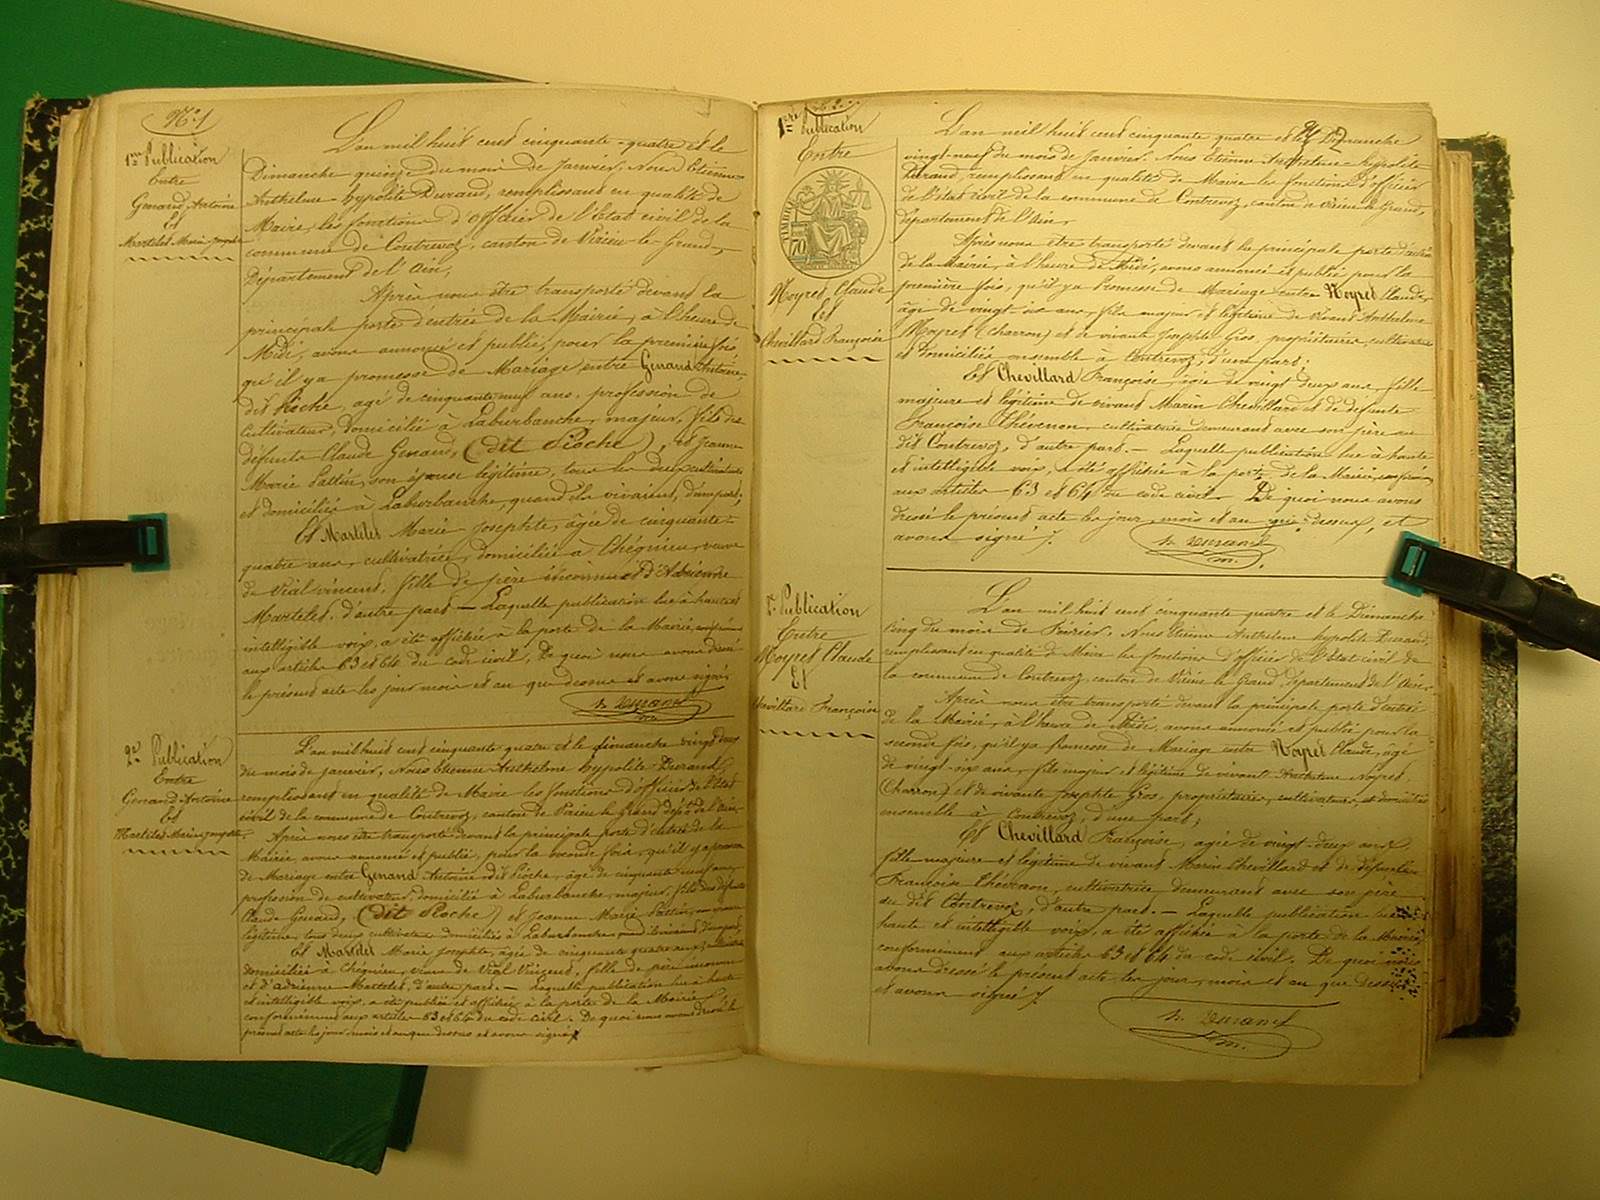 N° 1
1ère Publication
Entre
Genand Antoine
Et
Martelet Marie-Josephte
L'an mil huit cent cinquante-quatre et le
Dimanche quinze du mois de Janvier, Nous Etienne
Anthelme hypolite Durand, remplissant en qualité de
Maire, les fonctions d'officier de l'Etat civil de la
commune de Contrevoz, canton de Virieu-le-Grand,
Département de l'Ain,
Après nous être transporté devant la
principale porte d'entrée de la Mairie, à l'heure de
Midi, avons annoncé et publié, pour la première fois
qu'il y a promesse de Mariage entre Genand Antoine,
dit Pioche, agé de cinquante neuf ans, profession de
Cultivateur, domicilié à Laburbanche, majeur, fils de
défunts Claude Genand, (dit Pioche), et Jeanne
Marie son épouse légitime, tous les deux cultivateurs
et domiciliés à Laburbanche, quand ils vivaient, d'une part;
Et Martelet Marie-Josephte, âgée de cinquante-
quatre ans, cultivatrice, domiciliée à Chégnieu, veuve
de Vial vincent, fille de père inconnu et d'Adrienne
Martelet, d'autre part — Laquelle publication lue à haute et
intelligible voix, a été affichée à la porte de la Mairie, conformément
aux articles 63 et 64 du code civil, De quoi nous avons dressé
le présent acte les jour mois et an que dessus et avons signé
h. Durand
m.
2e Publication
Entre
Genand Antoine
Et
Martelet Marie Josephte
L'an mil huit cent cinquante quatre et le dimanche vingt deux
du mois de janvier, Nous Etienne Anthelme hypolite Durand,
remplissant en qualité de Maire les fonctions d'officier de l'Etat
civil de la commune de Contrevoz, canton de Virieu le Grand dépt de l'Ain.
Après nous être transporté devant la principale porte d'entrée de la
Mairie, avons annoncé et publié, pour la seconde fois, qu'il y a promesse
de Mariage entre Genand Antoine dit Pioche, âgé de cinquante neuf ans,
profession de cultivateur, domicilié à Laburbanche, majeur, fils de défunts
Claude Genand, (dit Pioche) et Jeanne Marie
légitime, tous deux cultivateurs domiciliés à Laburbanche, d'une part,
Et Martelet Marie Josephte, âgée de cinquante quatre ans,
domiciliée à Chégnieu, veuve de Vial Vincent, fille de père inconnu
et d'adrienne Martelet, d'autre part. — Laquelle publication lue à haute
et intelligible voix, a été publiée et affichée à la porte de la Mairie
conformément aux articles 63 et 64 du code civil. De quoi nous avons dressé le
présent acte les jour mois et an que dessus et avons signé
N° 2.
1ère Publication
Entre
TIMBRE
70
Noyret Claude
Et
Chevillard Françoise
L'an mil huit cent cinquante quatre et le Dimanche
vingt-neuf du mois de Janvier. Nous Etienne Anthelme hypolite
Durand, remplissant en qualité de Maire les fonctions d'officier
de l'état civil de la commune de Contrevoz, canton de Virieu le Grand,
Département de l'Ain.
Après nous être transporté devant la principale porte d'entrée
de la Mairie, à l'heure de Midi, avons annoncé et publié pour la
première fois, qu'il y a Promesse de Mariage entre Noyret Claude,
âgé de vingt-six ans, fils majeur et légitime de vivant Anthelme
Noyret (charron) et de vivante Josephte Gros, propriétaires, cultivateurs
et domiciliés ensemble à Contrevoz, d'une part;
Et Chevillard Françoise, agée de vingt deux ans, fille
majeure et légitime de vivant Marin Chevillard et de défunte
Françoise Thévenon, cultivatrice demeurant avec son père au
dit Contrevoz, d'autre part. — Laquelle publication lue à haute
et intelligible voix, a été affichée à la porte de la Mairie, conformément
aux articles 63 et 64 du code civil. De quoi nous avons
dressé le présent acte les jour, mois et an que dessus, et
avons signé
h. Durand
m.
2e Publication
Entre
Noyret Claude
Et
Chevillard Françoise
L'an mil huit cent cinquante quatre et le Dimanche
cinq du mois de Février, Nous Etienne Anthelme hypolite Durand,
remplissant en qualité de Maire les fonctions d'officier de l'Etat civil de
la commune de Contrevoz, canton de Virieu le Grand, Département de l'Ain.
Après nous être transporté devant la principale porte d'entrée
de la Mairie, à l'heure de Midi, avons annoncé et publié pour la
seconde fois, qu'il y a promesse de Mariage entre Noyret Claude, agé
de vingt-six ans, fils majeur et légitime de vivant Anthelme Noyret,
(Charron) et de vivante Josephte Gros, propriétaires, cultivateurs, et domiciliés
ensemble à Contrevoz, d'une part;
Et Chevillard Françoise, agée de vingt-deux ans,
fille majeure et légitime de vivant Marin Chevillard et de défunte
Françoise Thévenon, cultivatrice demeurant avec son père
au dit Contrevoz, d'autre part. — Laquelle publication lue à
haute et intelligible voix, a été affichée à la porte de la Mairie,
conformément aux articles 63 et 64 du code civil. De quoi nous
avons dressé le présent acte les jour, mois et an que dessus
et avons signé
h. Durand
m.